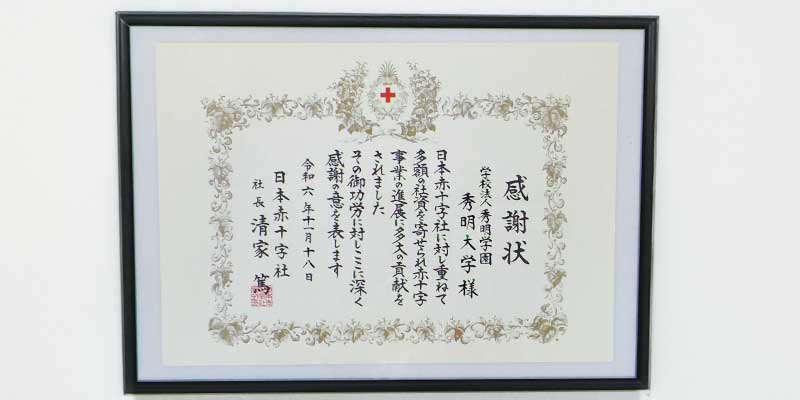 感謝状
学校法人秀明学園
秀明大学様
日本赤十字社に対し重ねて
多額の社資を寄せられ赤十字
事業の進展に多大の貢献を
されました
その御功労に対しここに深く
感謝の意を表します
令和六年十一月十八日
日本赤十字社
社長 清家 篤